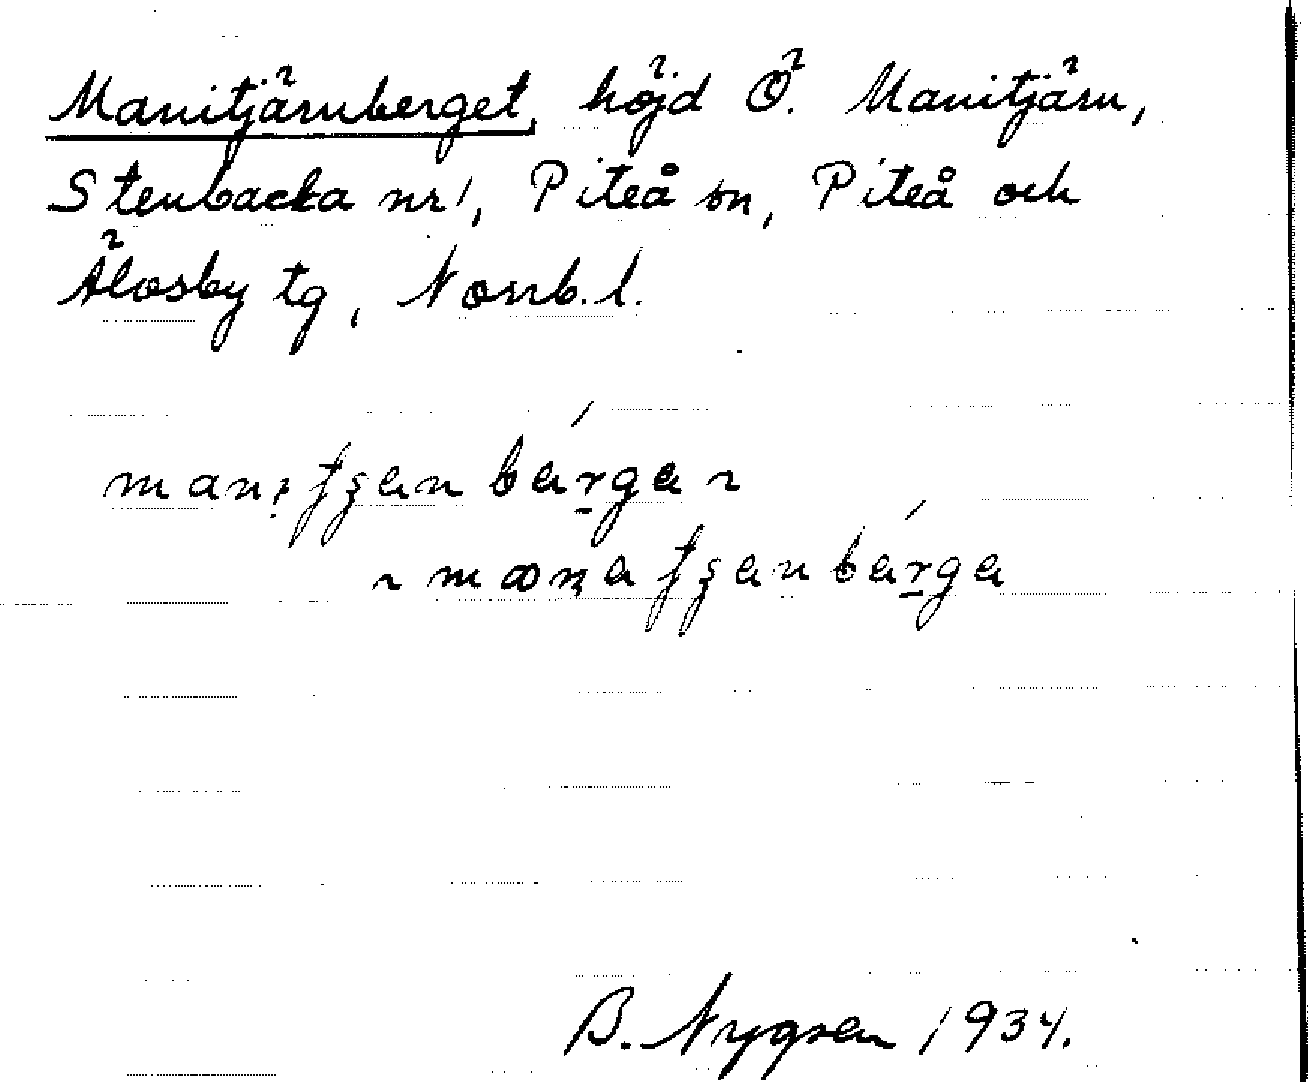 Manitjärnberget, höjd Ö. Manitjärn,
Stenbacka nr 1, Piteå sn, Piteå och
Älvsby tg, Norrb. l.
B. Nygren 1934.